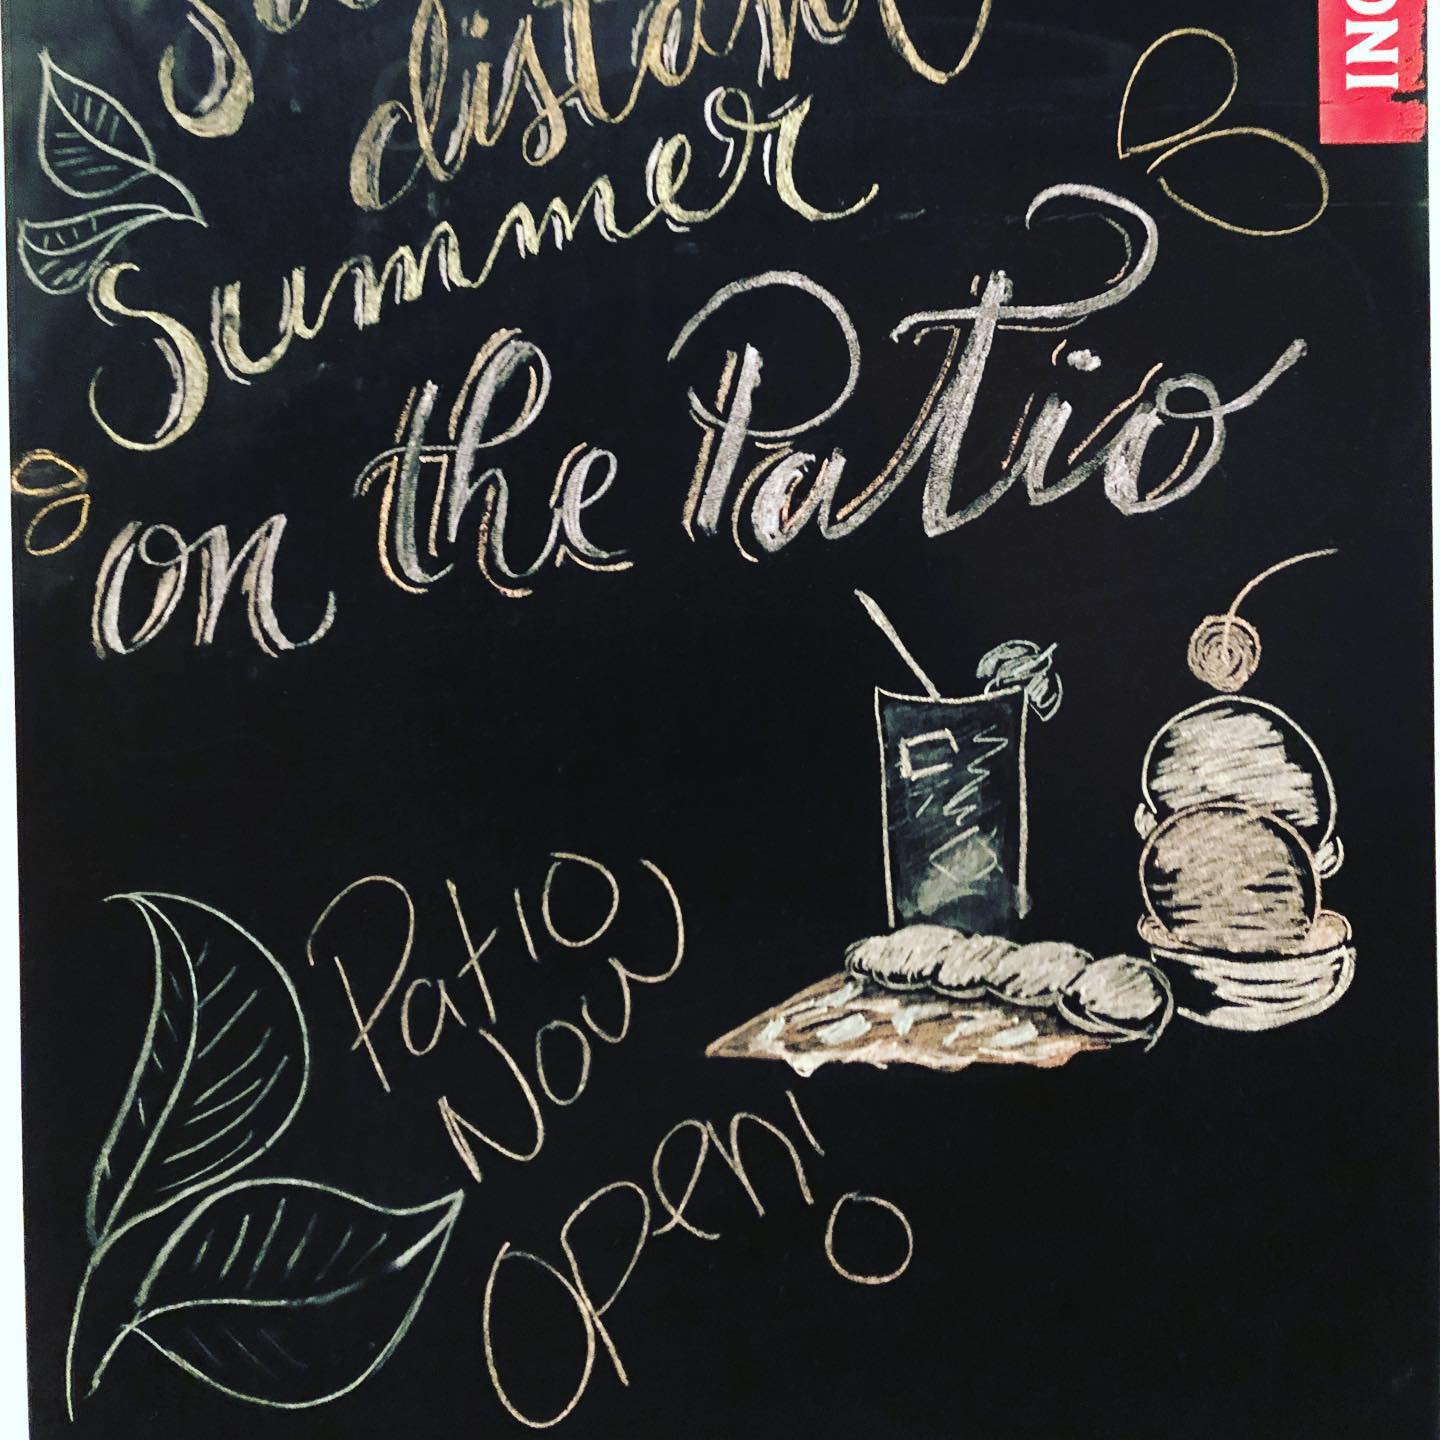 distant
Summer
on the Patio
Patio
Now
open!